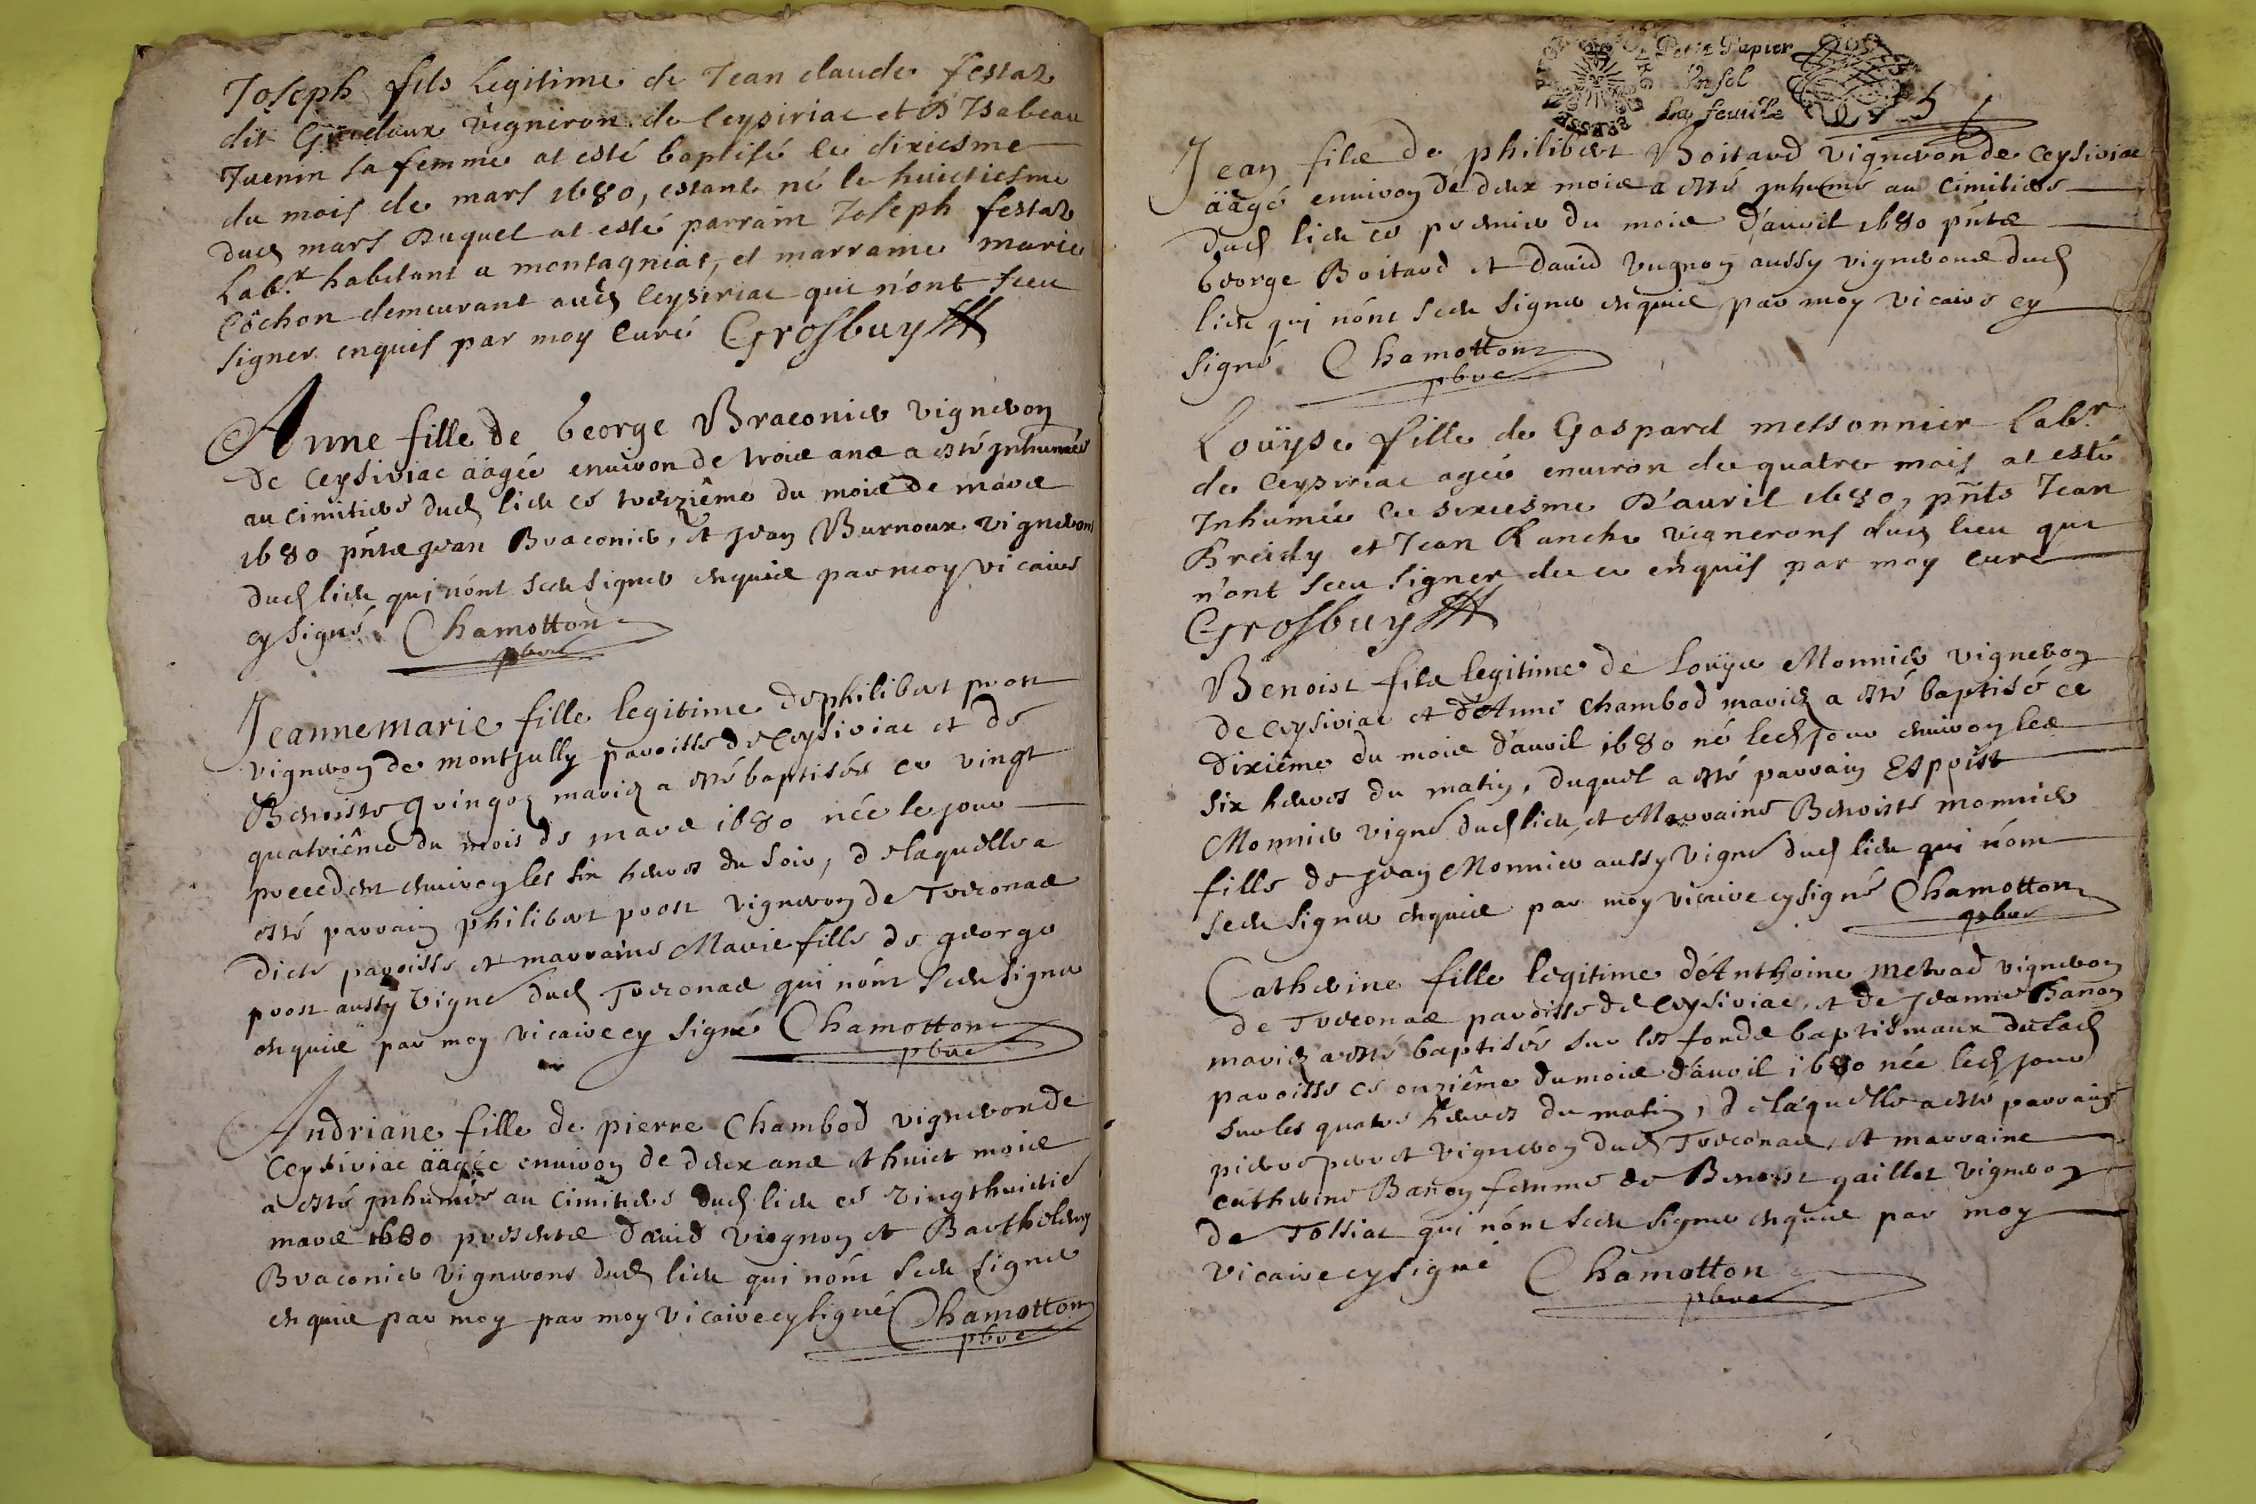 Joseph fils legitime de Jean claude festaz
dit Guedoux vigneron de Ceysiriac et D'Isabeau
Juenin sa femme at esté baptisé le dixiesme
du mois de mars 1680, estant né le huictiesme
dud mars Duquel at esté parrain Joseph festaz
Lab.r habitant a montagniat, et marraine marie
Cochon demeurant aud Ceysiriac qui n'ont sceu
signer enquis par moy Curé Grosbuy
Anne fille de George Braconier vigneron
de Ceysiriac aagée enuiron de trois ans a esté inhumée
au cimitiere dud lieu ce treiziême du mois de mars
1680 pñts jean Braconier, et jean Burnoux vignerons
dud lieu qui n'ont sceu signer enquis par moy vicaire
cy signé Chamotton
pbre
Jeanne marie fille legitime de philibert prost
vigneron de montjully paroisse de Ceysiriac et de
Benoiste Guingoz mariez a esté baptisée ce vingt
quatriême du mois de mars 1680 née le jour
precedent enuiron les six heures du soir, de laquelle a
esté parrain philibert prost vigneron de Treconas
dicte paroisse et marraine Marie fille de george
prost aussy vigne dud Treconas qui n'ont sceu signer
enquis par moy vicaire cy signé Chamotton
pbre
Andriane fille de pierre Chambod vigneron de
Ceysiriac aagée enuiron de deux ans et huict mois
a esté inhumée au cimitiere dud lieu ce vingthuictie
mars 1680 presents dauid viognon et Barthelemy
Braconier vignerons dud lieu qui n'ont sceu signer
enquis par moy par moy vicaire cy signé Chamotton
pbre
Petit Papier
Un sol
La feuille
Jean fils de philibert Boitard vigneron de Ceysiriac
aagé enuiron de deux mois a esté inhumé au cimitiere
dud lieu ce premier du mois d'auril 1680 pñts
George Boitard et dauid vugnon aussy vignerons dud
lieu qui n'ont sceu signer enquis par moy vicaire cy
signé Chamotton
pbre
Louÿse fille de Gaspard messonnier Lab.r
de Ceysiriac agée enuiron de quatre mois at esté
Inhumée le sixiesme D'auril 1680, pñts Jean
Breidy et Jean Ranche vignerons dud lieu qui
n'ont sceu signer de ce enquis par moy curé
Grosbuy
Benoist fils legitime de Louÿs Monnier vigneron
de Ceysiriac et d'Anne Chambod mariez a esté baptisé ce
dixiême du mois d'auril 1680 né led jour enuiron les
six heures du matin, duquel a esté parrain Espoist
Monnier vigne dud lieu, et Marraine Benoiste monnier
fille de jean Monnier aussy vigne dud lieu qui n'ont
sceu signer enquis par moy vicaire cy signé Chamotton
pbre
Catherine fille legitime d'Anthoine metrad vigneron
de Treconas paroisse de Ceysiriac, et de jeanne Banon
mariez a esté baptisée sur les fonds baptismaux de lad
paroisse ce onziême du mois d'auril 1680 née led jour
sur les quatre heures du matin, de laquelle a esté parrain
pierre perret vigneron dud Treconas, et marraine
catherine Banon femme de Benoist gaillot vigneron
de Tossiat qui n'ont sceu signer enquis par moy
vicaire cy signé Chamotton
pbre